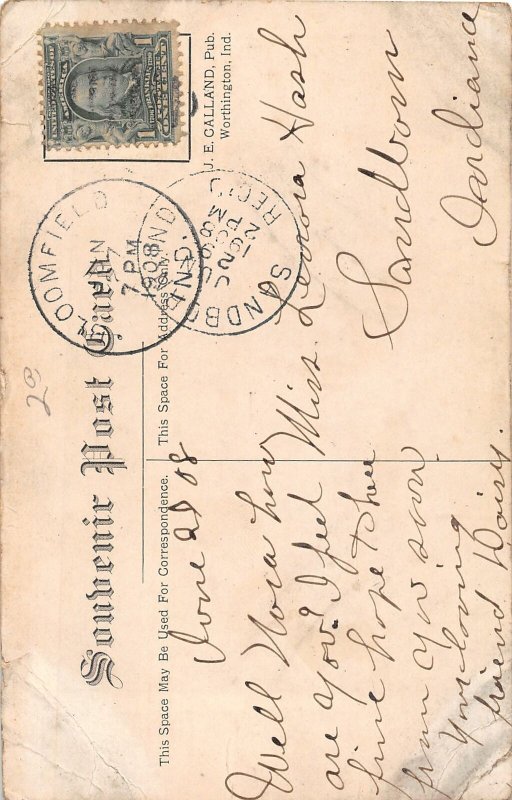 Souvenir Post Card.
This Space May Be Used For Correspondence.
This Space For Address Only.
J. E. GALLAND, Pub.
Worthington, Ind.
ONE CENT
BLOOMFIELD
7 PM
1908
IND.
SANDBORN
IND.
2 PM
1908
REC'D
23
June 08
Well Nora how
are You? I feel
fine hope to hear
from You soon.
Your loving
friend Daisy.
Miss. Lenora Hash
Sandborn
Indiana